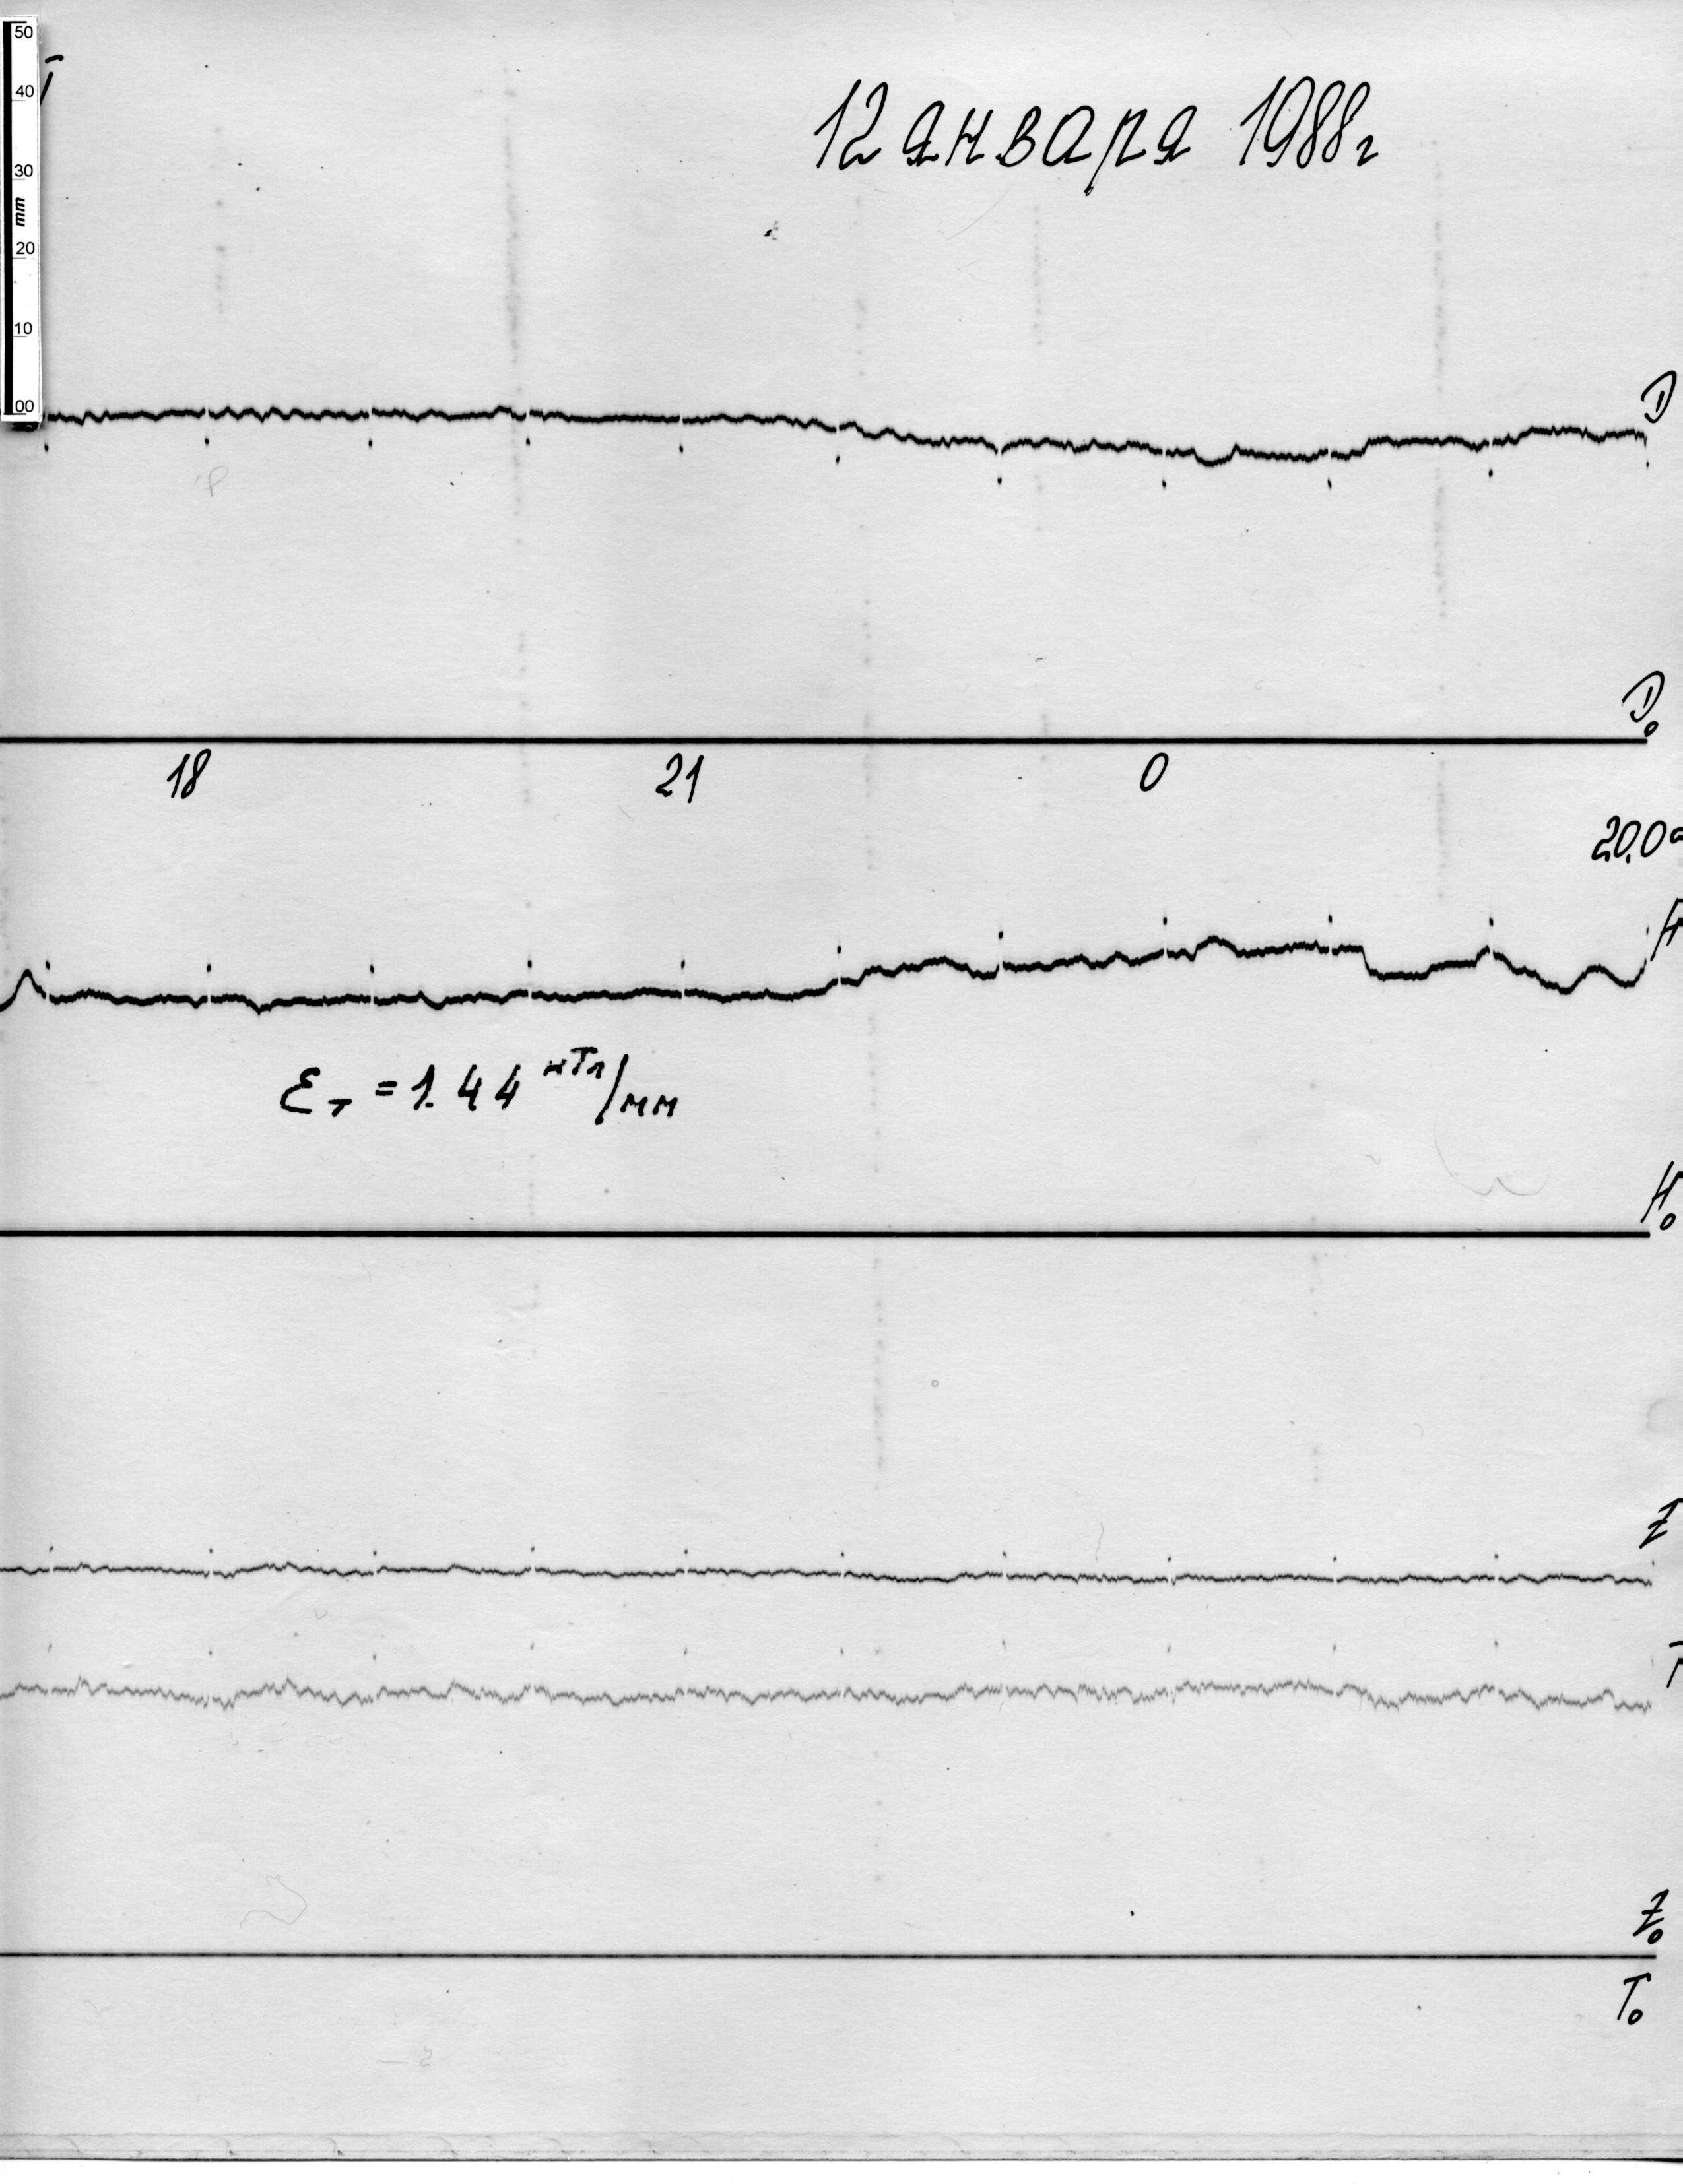 50
40
30
mm
20
10
00
12 января 1988г
D
D₀
18 21 0
20.0
H
ε_т = 1.44 нТл/мм
H₀
Z
T
Z₀
T₀